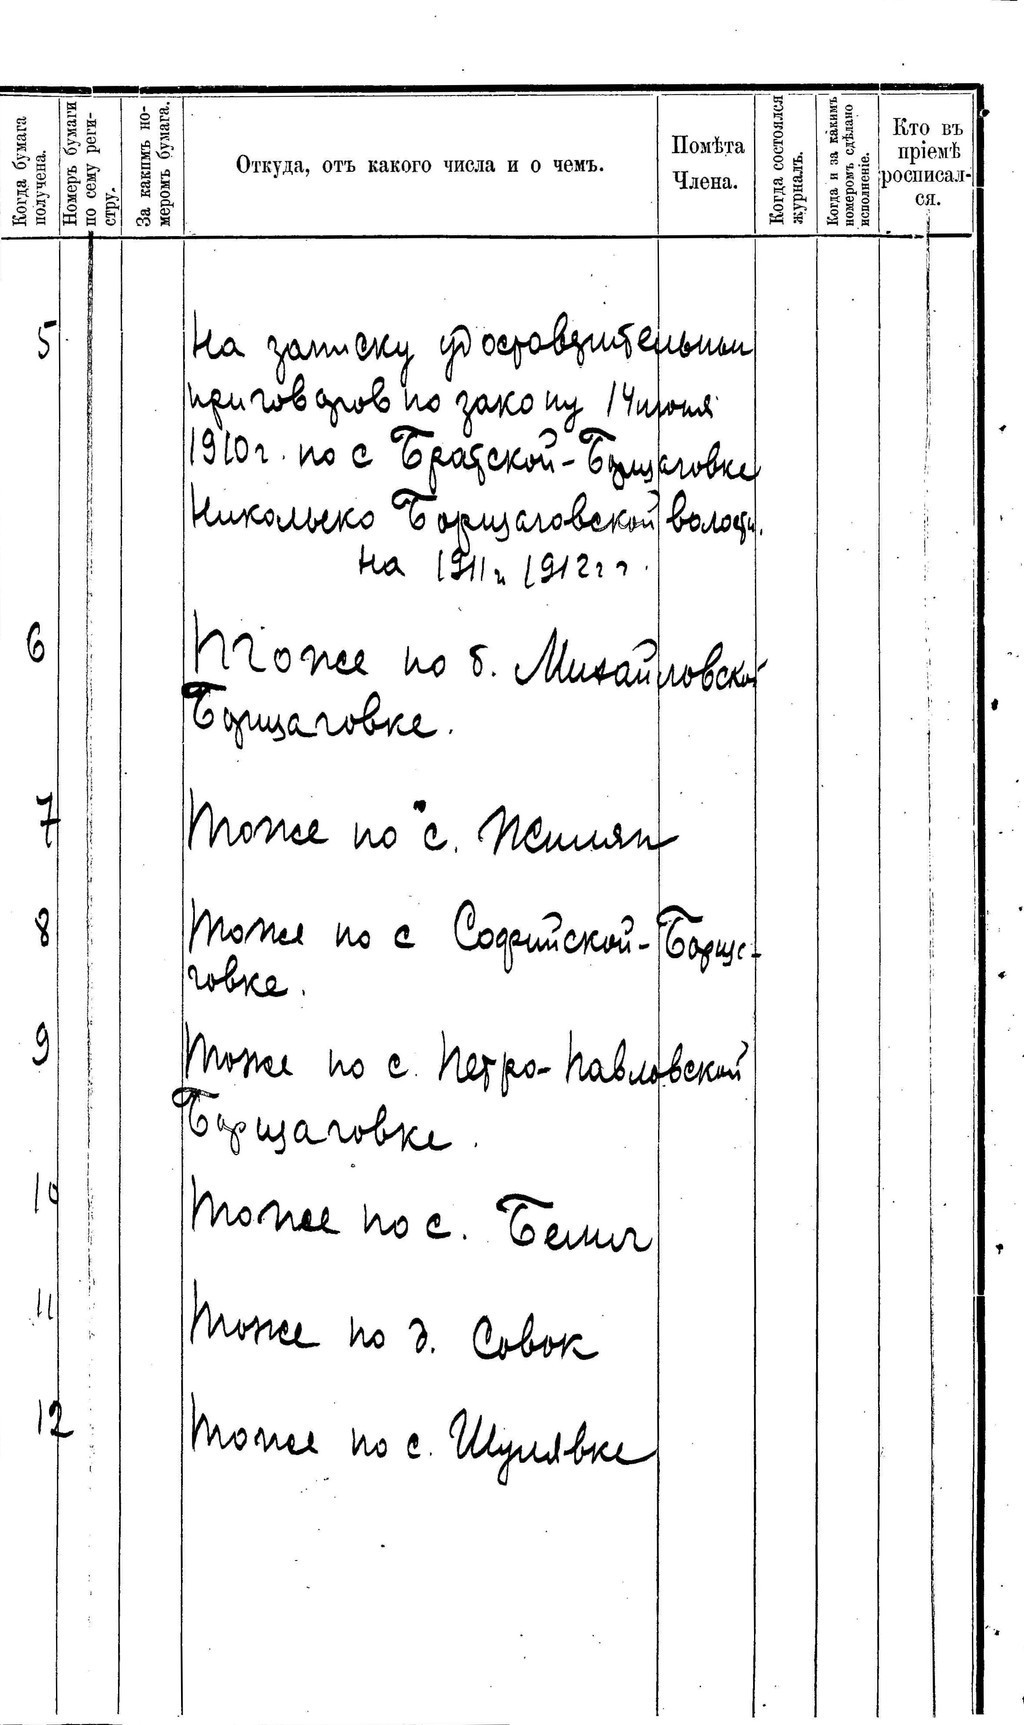 Когда бумага
получена.
Номеръ бумаги
по сему реги-
стру.
За какимъ но-
меромъ бумага.
Откуда, отъ какого числа и о чемъ.
Помѣта
Члена.
Когда состоялся
журналъ.
Когда и за какимъ
номеромъ сдѣлано
исполненіе.
Кто въ
пріемѣ
росписал-
ся.
5
На записку удостоверительных
приговоров по закону 14 июня
1910 г. по с Братской-Борщаговке
Никольско Борщаговской волости.
на 1911 и 1912 г г.
6
Тоже по б. Михайловской
Борщаговке.
7
Тоже по с. Жилян
8
Тоже по с Софийской-Борща-
говке.
9
Тоже по с. Петро-Павловской
Борщаговке.
10
Тоже по с. Беличи
11
Тоже по д. Совок
12
Тоже по с. Шулявке